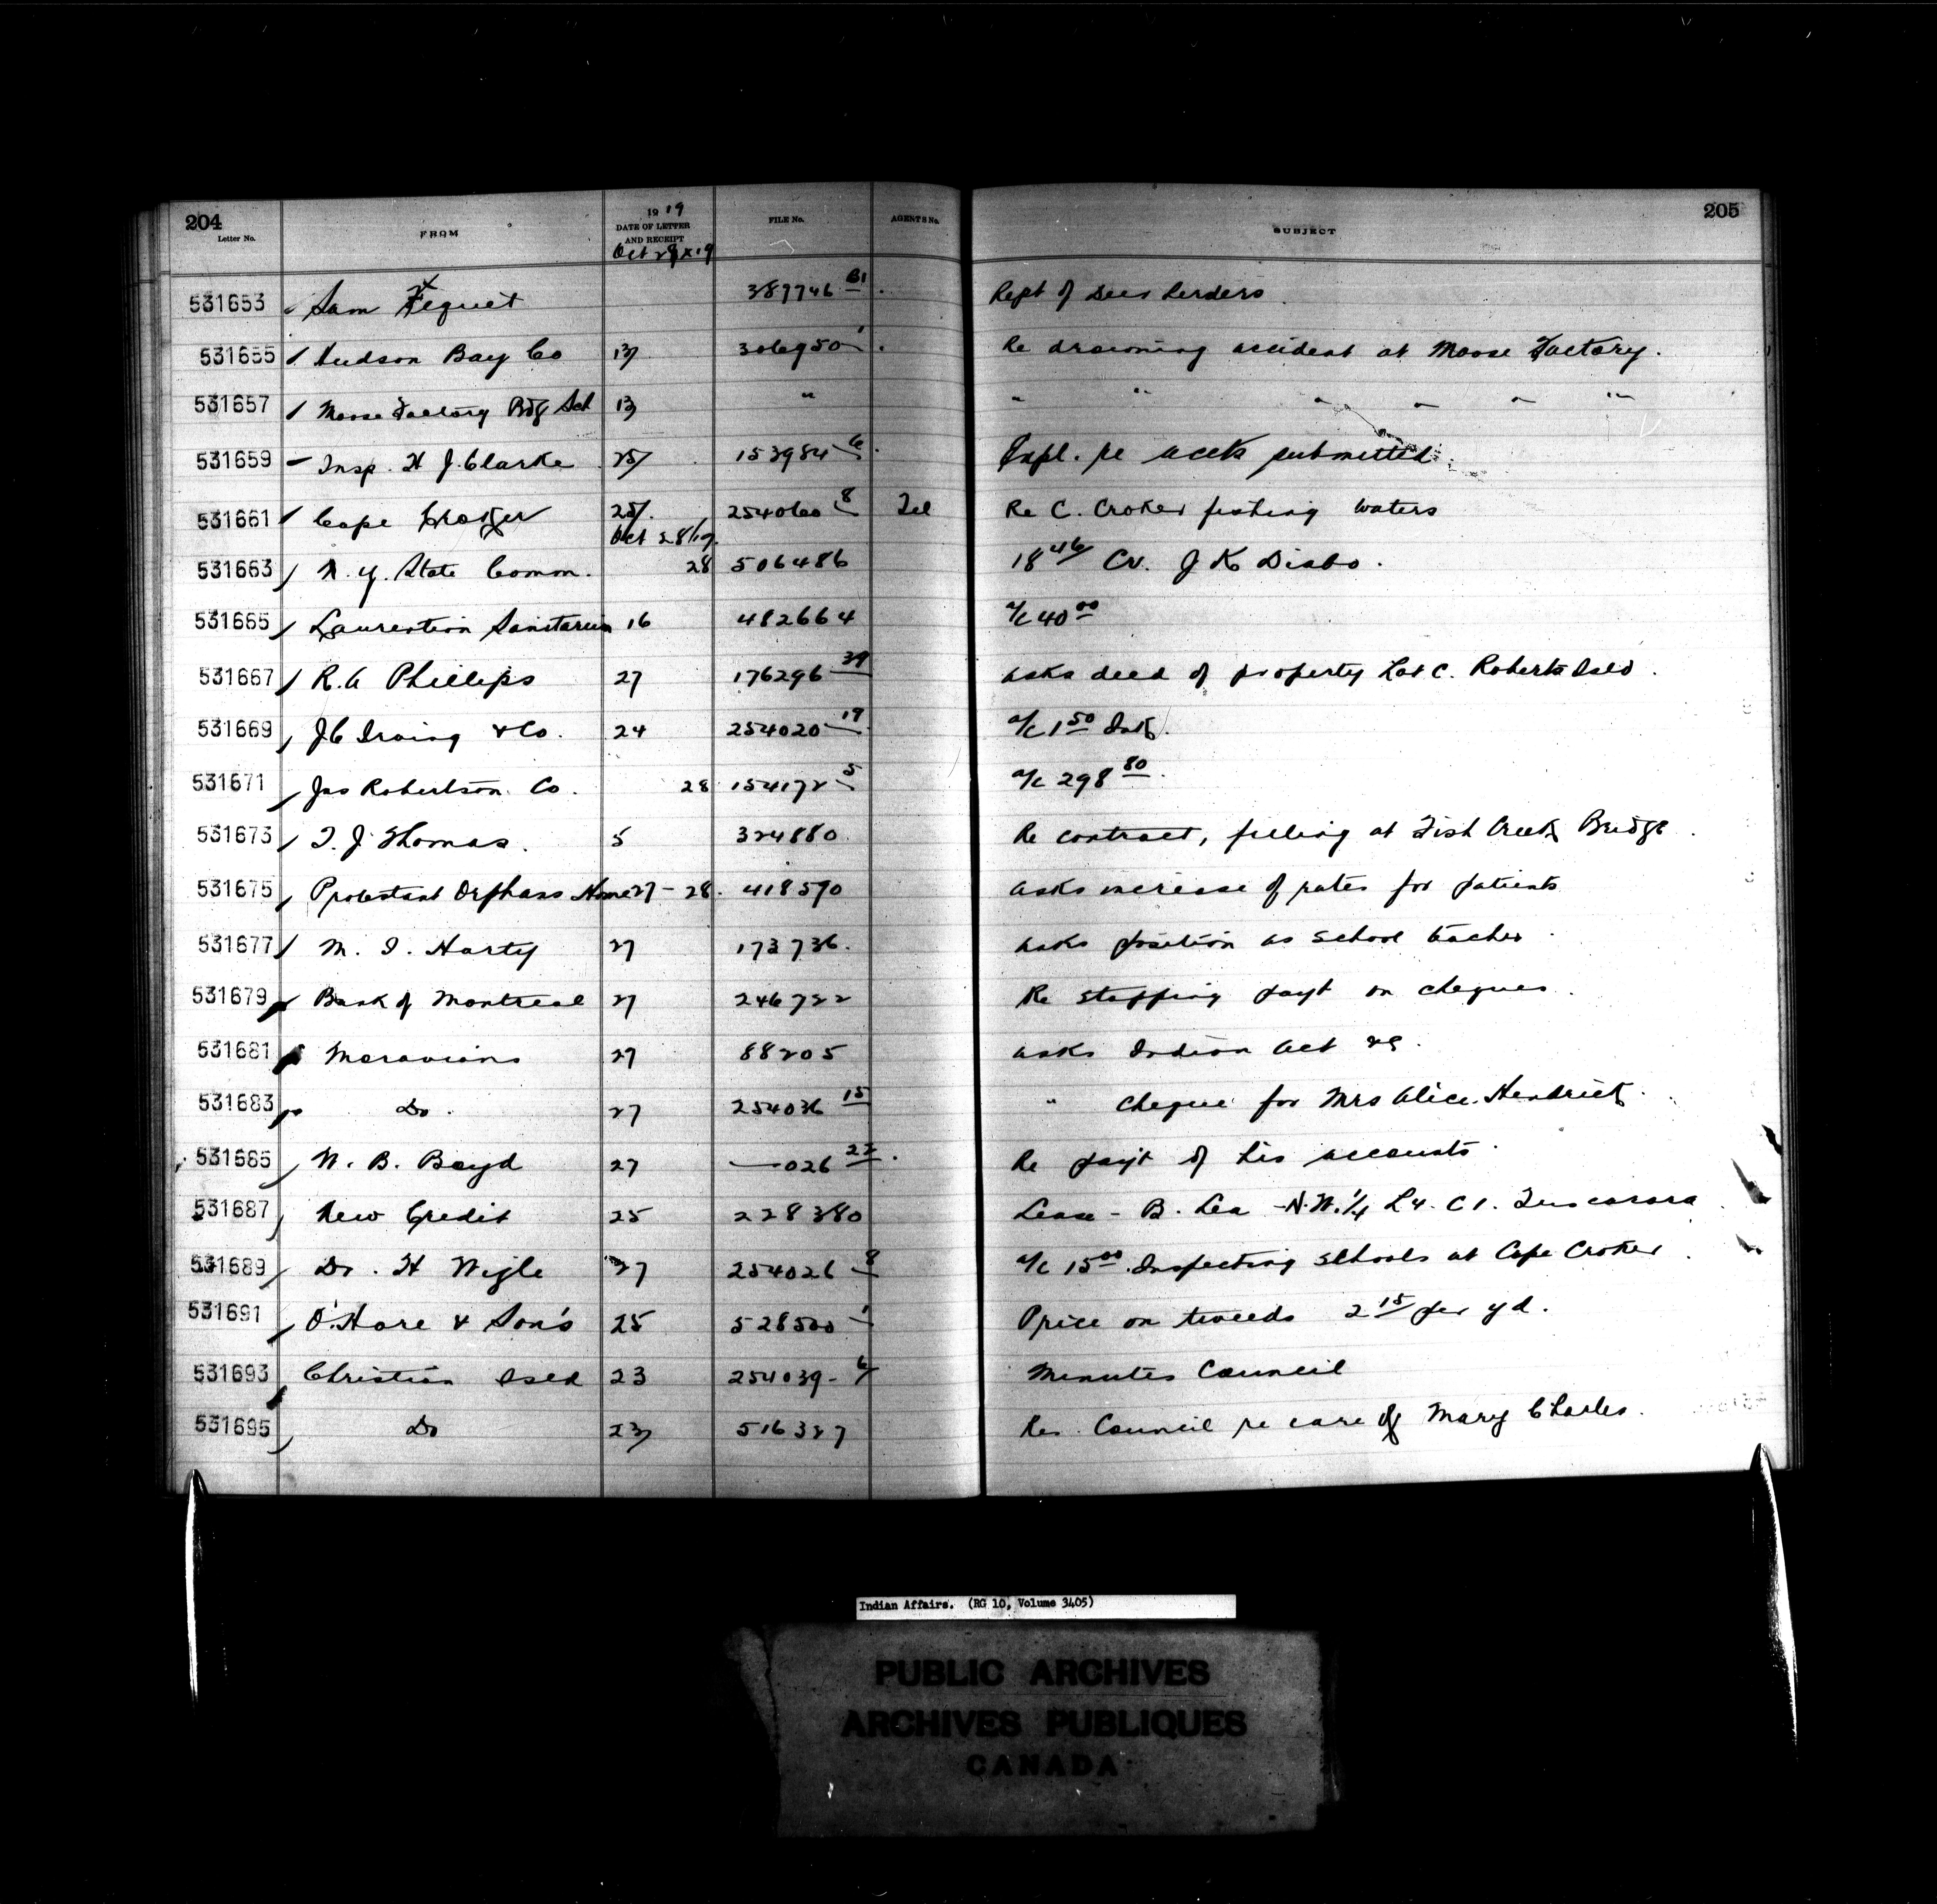 204
Letter No. FROM 1919 DATE OF LETTER AND RECEIPT FILE No. AGENTS No. SUBJECT 205
Oct 29 x 19
531653 Sam Fequet 387746 B1 Rept of Deer herders
531655 Hudson Bay Co 13 306950 1 Re drowning accident at Moose Factory.
531657 Moose Factory Bdg Sch 13 " " " " " " "
531659 Insp. H J. Clarke 25 153984 6 Expl. re accts submitted
531661 Cape Croker 25 254060 8 Tel Re C. Croker fishing waters
Oct 28/19
531663 N. Y. State Comm. 28 506486 18 46 Cr. J K Diabo.
531665 Laurention Sanitarium 16 482664 a/c 40 00
531667 R. A Phillips 27 176296 39 asks deed of property Lot C. Roberts Isld.
531669 J C Irving & Co. 24 254020 19 a/c 1 50 Ink.
531671 Jas Robertson Co. 28 154172 5 a/c 298 80
531673 T. J. Thomas. 5 324880 Re contract, filling at Fish Creek Bridge
531675 Protestant Orphans Home 27 - 28. 418570 asks increase of rates for patients
531677 M. I. Harty 27 173736. asks position as school teacher
531679 Bank of Montreal 27 246722 Re stopping payt on cheques
531681 Moravians 27 88205 asks Indian Act
531683 Do. 27 254036 15 " cheque for Mrs Alice Hendrick
531685 W. B. Boyd 27 — 026 22 Re payt of his accounts
531687 New Credit 25 228380 Lease - B. Lea - N.W. 1/4 L4. C1. Tuscarora
531689 Dr. H Wigle 27 254026 8 a/c 15 00 Inspecting schools at Cape Croker
531691 O'Hare & Son's 25 528500 1 Price on tweeds 2 15 per yd.
531693 Christian Isld 23 254039 - 6 Minutes Council
531695 Do 23 516327 Res. Council re care of Mary Charles.
Indian Affairs. (RG 10, Volume 3405)
PUBLIC ARCHIVES
ARCHIVES PUBLIQUES
CANADA